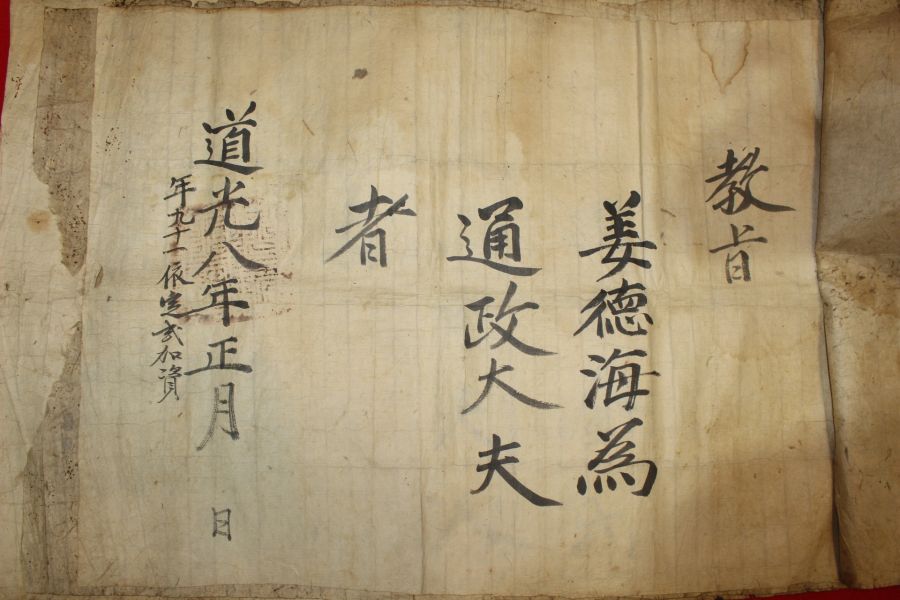 教旨
姜德海為
通政大夫
者
道光八年正月 日
年九十一依定式加資